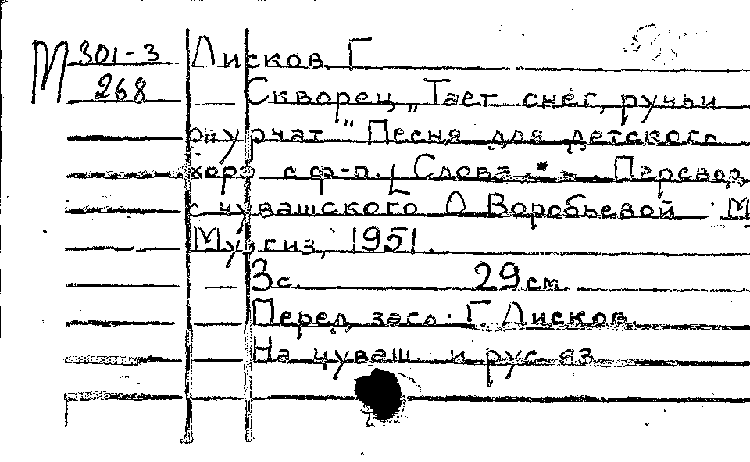 М 301-3 Лисков Г
268 Скворец „Тает снег, ручьи
журчат" Песня для детского
хора с ф-п. [Слова * * Перевод
с чувашского О Воробьевой М
Музгиз, 1951.
3с. 29см
Перед засл. Г Лисков
На чуваш и рус яз